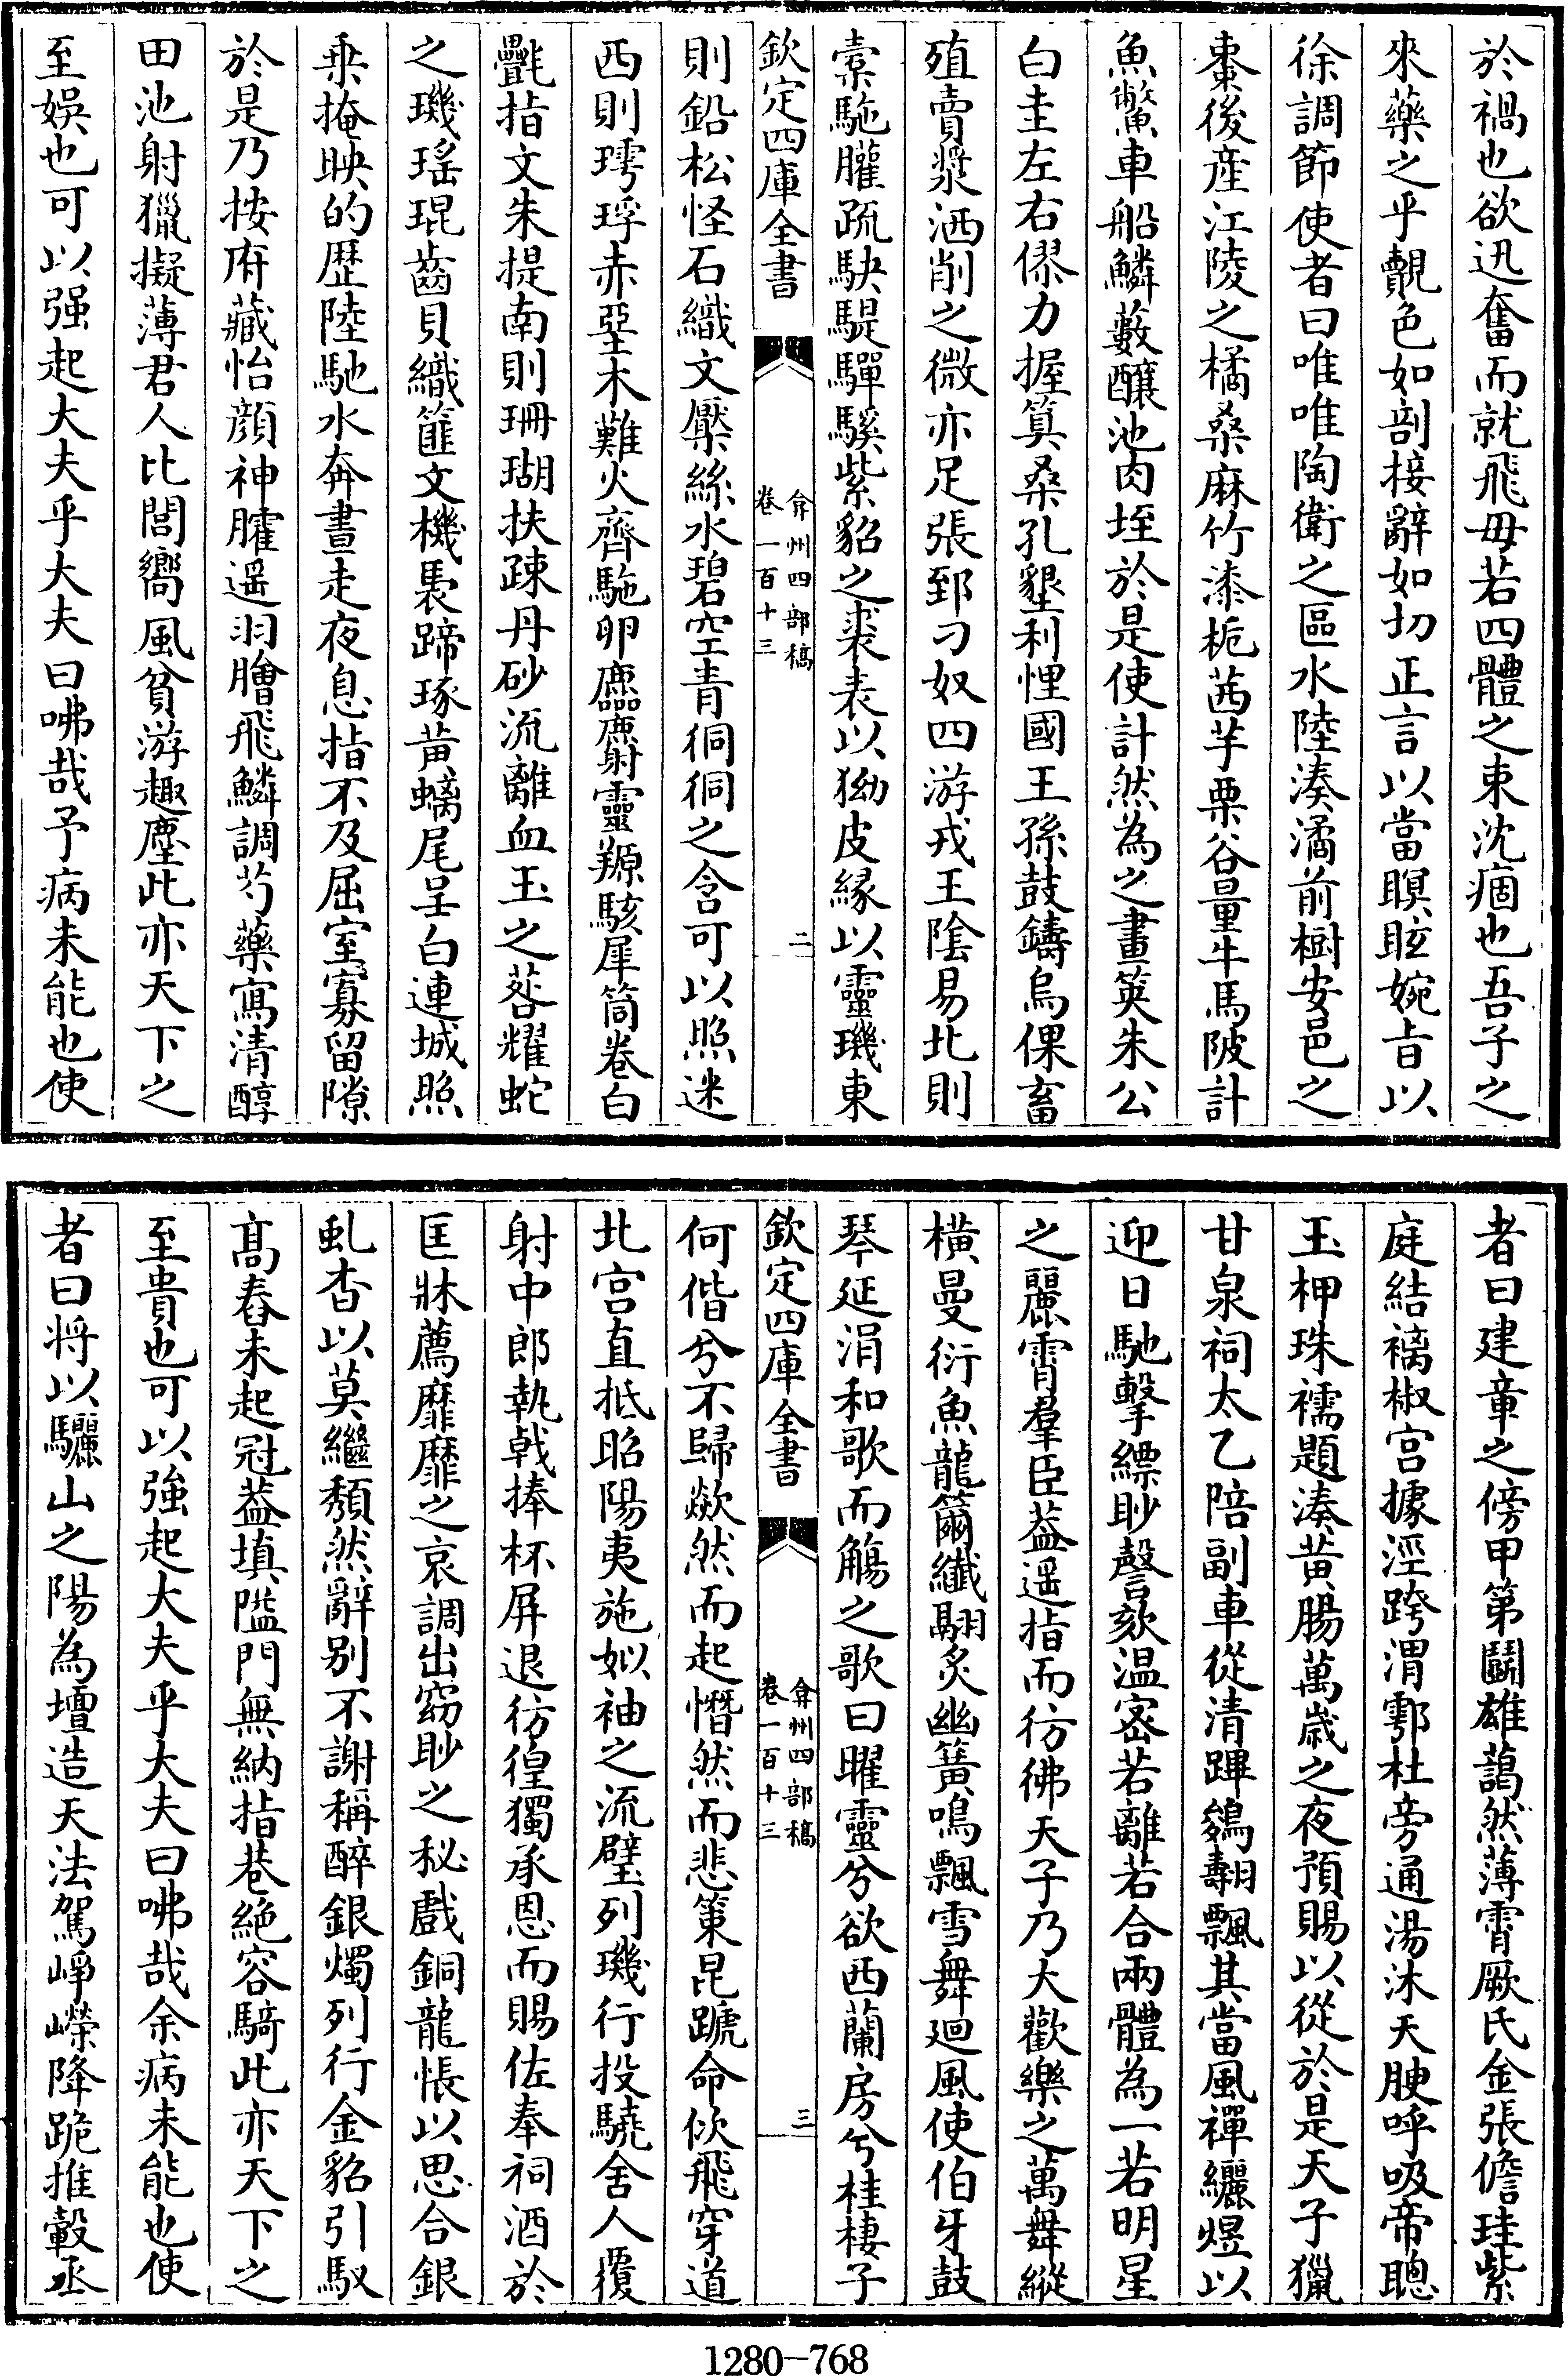 於禍也欲迅奮而就飛毋若四體之束沈痼也吾子之
來藥之乎覿色如剖接辭如切正言以當瞑眩婉㫖以
徐調節使者曰唯唯陶衛之區水陸湊潏前樹安邑之
棗後産江陵之橘桑麻竹漆梔茜芋栗谷量牛馬陂計
魚鱉車船鱗藪釀池肉垤於是使計然為之畫筴朱公
白圭左右僇力握筭桑孔墾利悝國王孫鼓鑄烏倮畜
殖賣漿洒削之微亦足張郅刁奴四游戎王隂易北則
橐駞臛疏駃騠驒騱紫貂之裘表以㺜皮緣以靈璣東
欽定四庫全書
弇州四部稿
卷一百十三
二
則鉛松怪石織文檿絲水碧空青侗侗之含可以照迷
西則瑦琈赤堊木難火齊駞卵麢麝靈羱駭犀筒卷白
氎指文朱提南則珊瑚扶疎丹砂流離血玉之荅耀蛇
之璣瑤琨齒貝織篚文機褭蹄琢黄螭尾呈白連城照
乗掩映的歷陸馳水奔晝走夜息指不及屈室寡留隙
於是乃按府藏怡顔神臛遥羽膾飛鱗調芍藥寫清醇
田池射獵擬薄君人比閭嚮風貧游趣塵此亦天下之
至娯也可以强起大夫乎大夫曰咈哉予病未能也使
者曰建章之傍甲第鬬雄藹然薄霄厥氏金張儋珪紫
庭結褵椒宫據涇跨渭鄠杜旁通湯沐天腴呼吸帝聰
玉柙珠襦題湊黄腸萬歲之夜預賜以從於是天子獵
甘泉祠太乙陪副車從清蹕鷄翿飄其當風襌纚煜以
迎日馳擊縹眇謦欬温宻若離若合兩體為一若明星
之麗霄羣臣葢遥指而彷彿天子乃大歡樂之萬舞縱
横曼衍魚龍籋纎翮炙幽簧鳴飄雪舞廻風使伯牙鼓
琴延涓和歌而觴之歌曰曜靈兮欲西蘭房兮桂棲子
欽定四庫全書
弇州四部稿
卷一百十三
三
何偕兮不歸歘然而起憯然而悲策昆蹏命佽飛穿道
北宫直抵昭陽夷施姒袖之流璧列璣行投驍舍人覆
射中郎執戟捧杯屏退彷徨獨承恩而賜佐奉祠酒於
匡牀薦靡靡之哀調出窈眇之秘戲銅龍悵以思合銀
虬杳以莫繼頽然辭别不謝稱醉銀燭列行金貂引馭
髙舂未起冠葢填隘門無納指巷絶容騎此亦天下之
至貴也可以強起大夫乎大夫曰咈哉余病未能也使
者曰将以驪山之陽為壇造天法駕崢嶸降跪推轂丞
1280-768